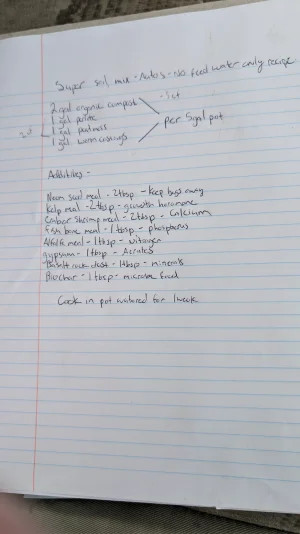 Super soil mix - Autos - No feed water only recipe
2 gal organic compost
1 gal perlite
1 gal peatmoss
1 gal worm castings
per 5gal pot
Additives -
Neem seed meal - 2tbsp - keep bugs away
Kelp meal - 2tbsp - growth hormone
Crab or Shrimp meal - 2tbsp - Calcium
Fish bone meal - 1tbsp - phosphorus
Alfalfa meal - 1tbsp - nitrogen
gypsum - 1tbsp -
Basalt rock dust - 1tbsp - minerals
Biochar - 1tbsp - microbe food
Cook in pot watered for 1 week